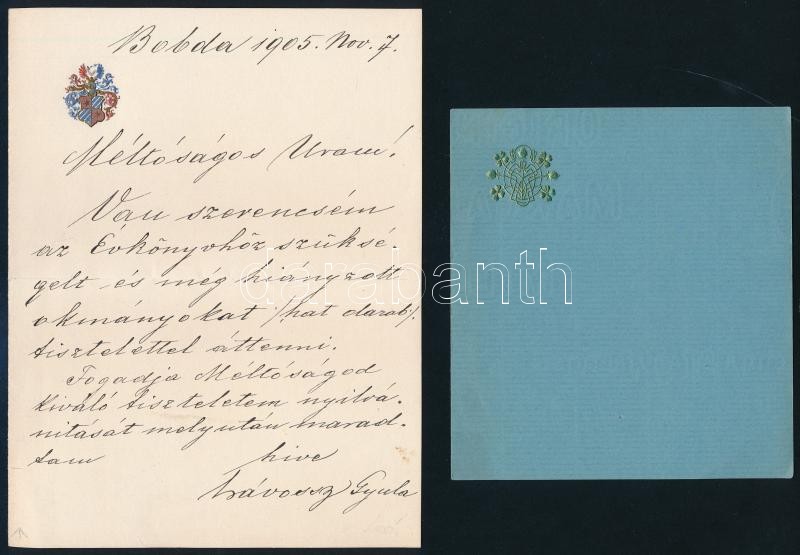 Bobda 1905. Nov. 7.
Méltóságos Uram!
Van szerencsém
az Évkönyvhöz szüksé-
gelt és még hiányzott
okmányokat /:hat darab:/
tisztelettel áttenni.
Fogadja Méltóságod
kiváló tiszteletem nyilvá-
nitását mely után marad-
tam hive
Gyula
darabanth